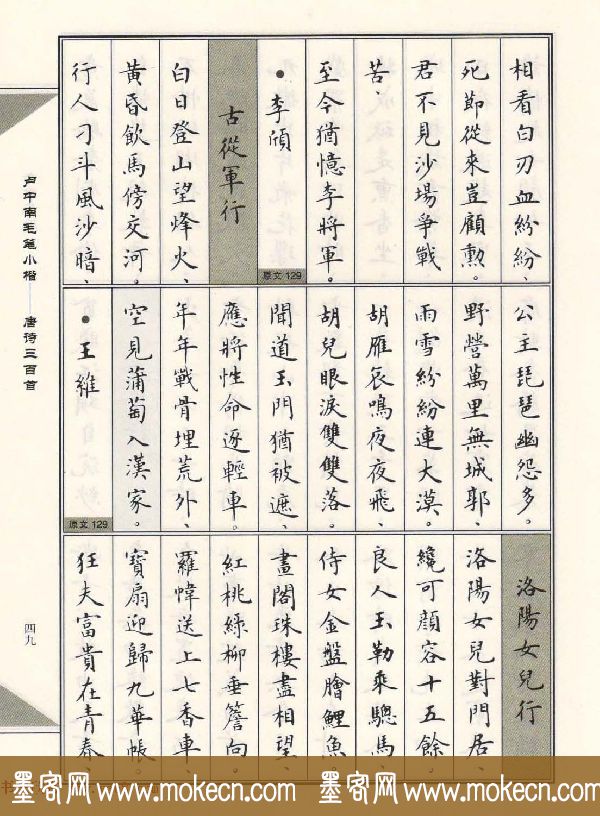 相看白刃血紛紛、
死節從來豈顧勲。
君不見沙場爭戰
苦、
至今猶憶李將軍。
●李頎
原文 129
古從軍行
白日登山望烽火、
黃昏飲馬傍交河。
行人刁斗風沙暗、
公主琵琶幽怨多。
野營萬里無城郭、
雨雪紛紛連大漠。
胡雁哀鳴夜夜飛、
胡兒眼淚雙雙落。
聞道玉門猶被遮、
應將性命逐輕車。
年年戰骨埋荒外、
空見蒲萄入漢家。
●王維
原文 129
洛陽女兒行
洛陽女兒對門居、
纔可顏容十五餘。
良人玉勒乘驄馬、
侍女金盤膾鯉魚。
畫閣珠樓盡相望、
紅桃綠柳垂簷向。
羅幃送上七香車、
寶扇迎歸九華帳。
狂夫富貴在青春、
卢中南毛笔小楷——唐诗三百首
四九
墨客网 www.mokecn.com 墨客网 www.mokecn.com